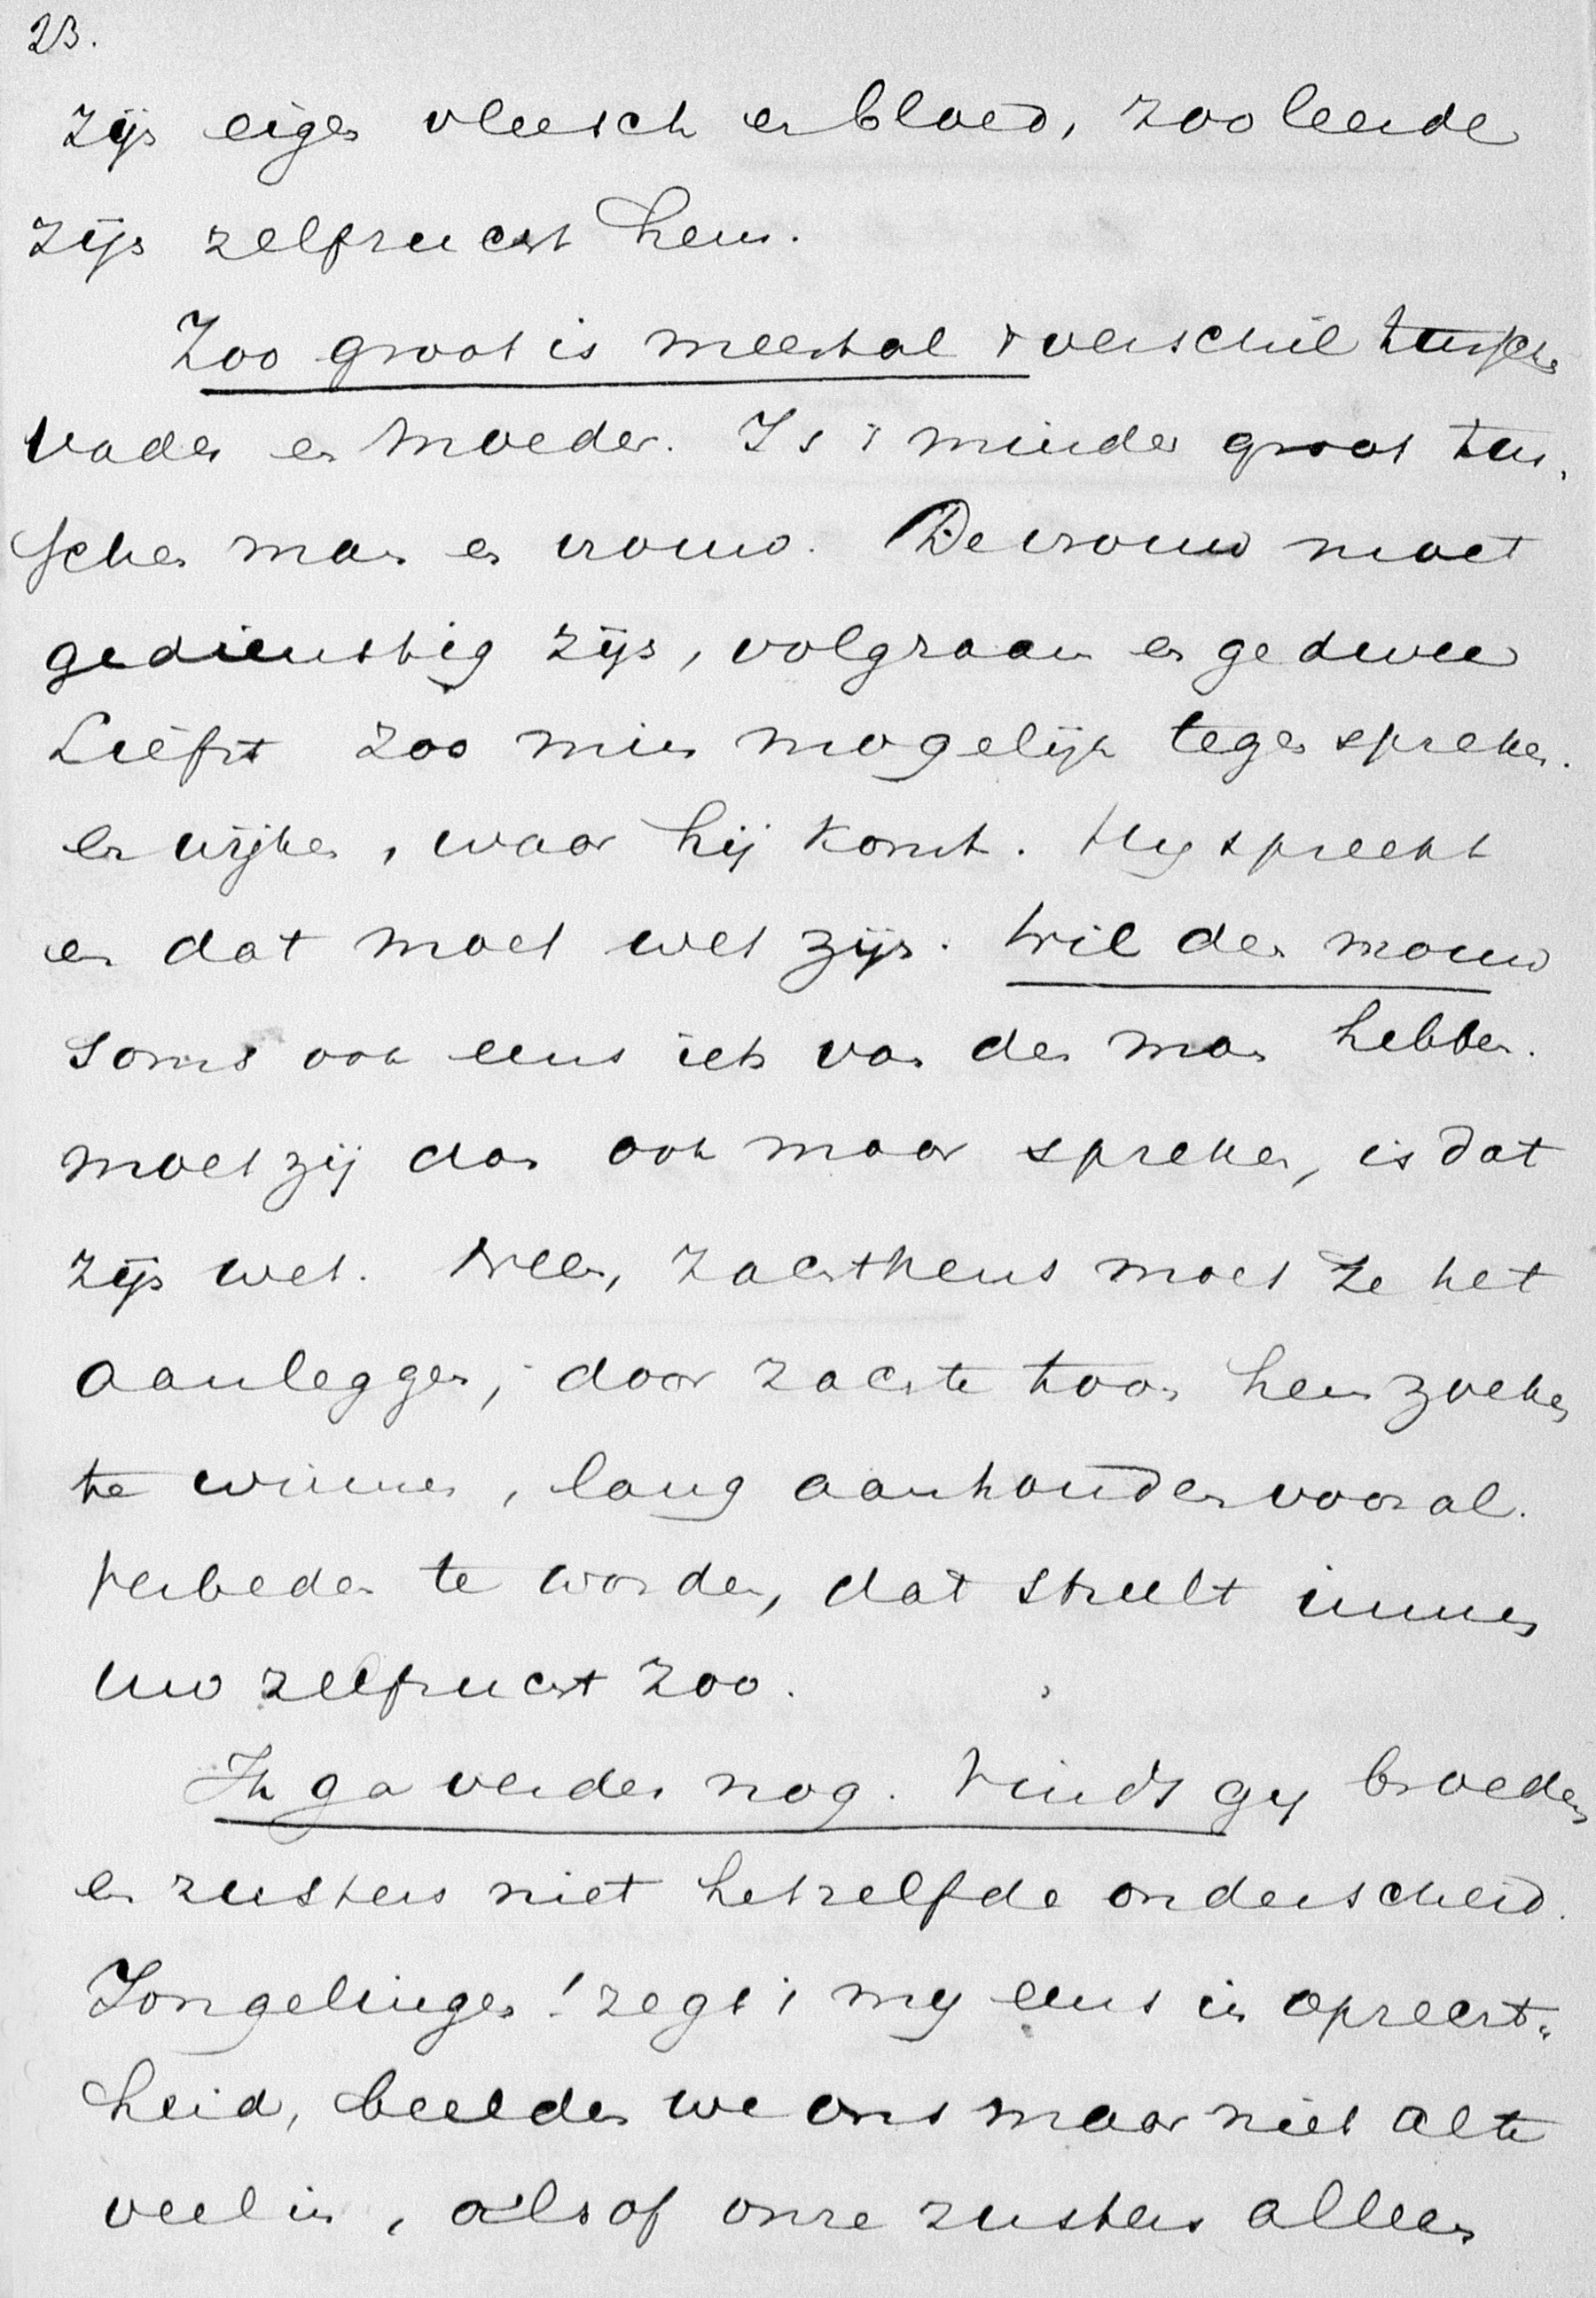 23.
zijn eigen vleesch en bloed, zoo leerde
zijn zelfzucht hem.
Zoo groot is meestal 't verschil tusschen
vader en moeder. Is 't minder groot tus-
schen man en vrouw. De vrouw moet
gedienstig zijn, volgzaam en gedwee
Liefst zoo min mogelijk tegenspreken.
en wijken, waar hij komt. Hij spreekt
en dat moet wet zijn. Wil de vrouw
soms ook eens iets van den man hebben.
moet zij dan ook maar spreken, is dat
zijn wet. Neen, zachtkens moet ze het
aanleggen, door zachte toon hem zoeken
te winnen, lang aanhouden vooral.
Verbeden te worden, dat streelt immers
uw zelfzucht zoo.
Ik ga verder nog. Vindt gij broeders
en zusters niet hetzelfde onderscheid.
Jongelingen! zegt 't mij eens in oprecht-
heid, beelden we ons maar niet al te
veel in, alsof onze zusters alleen